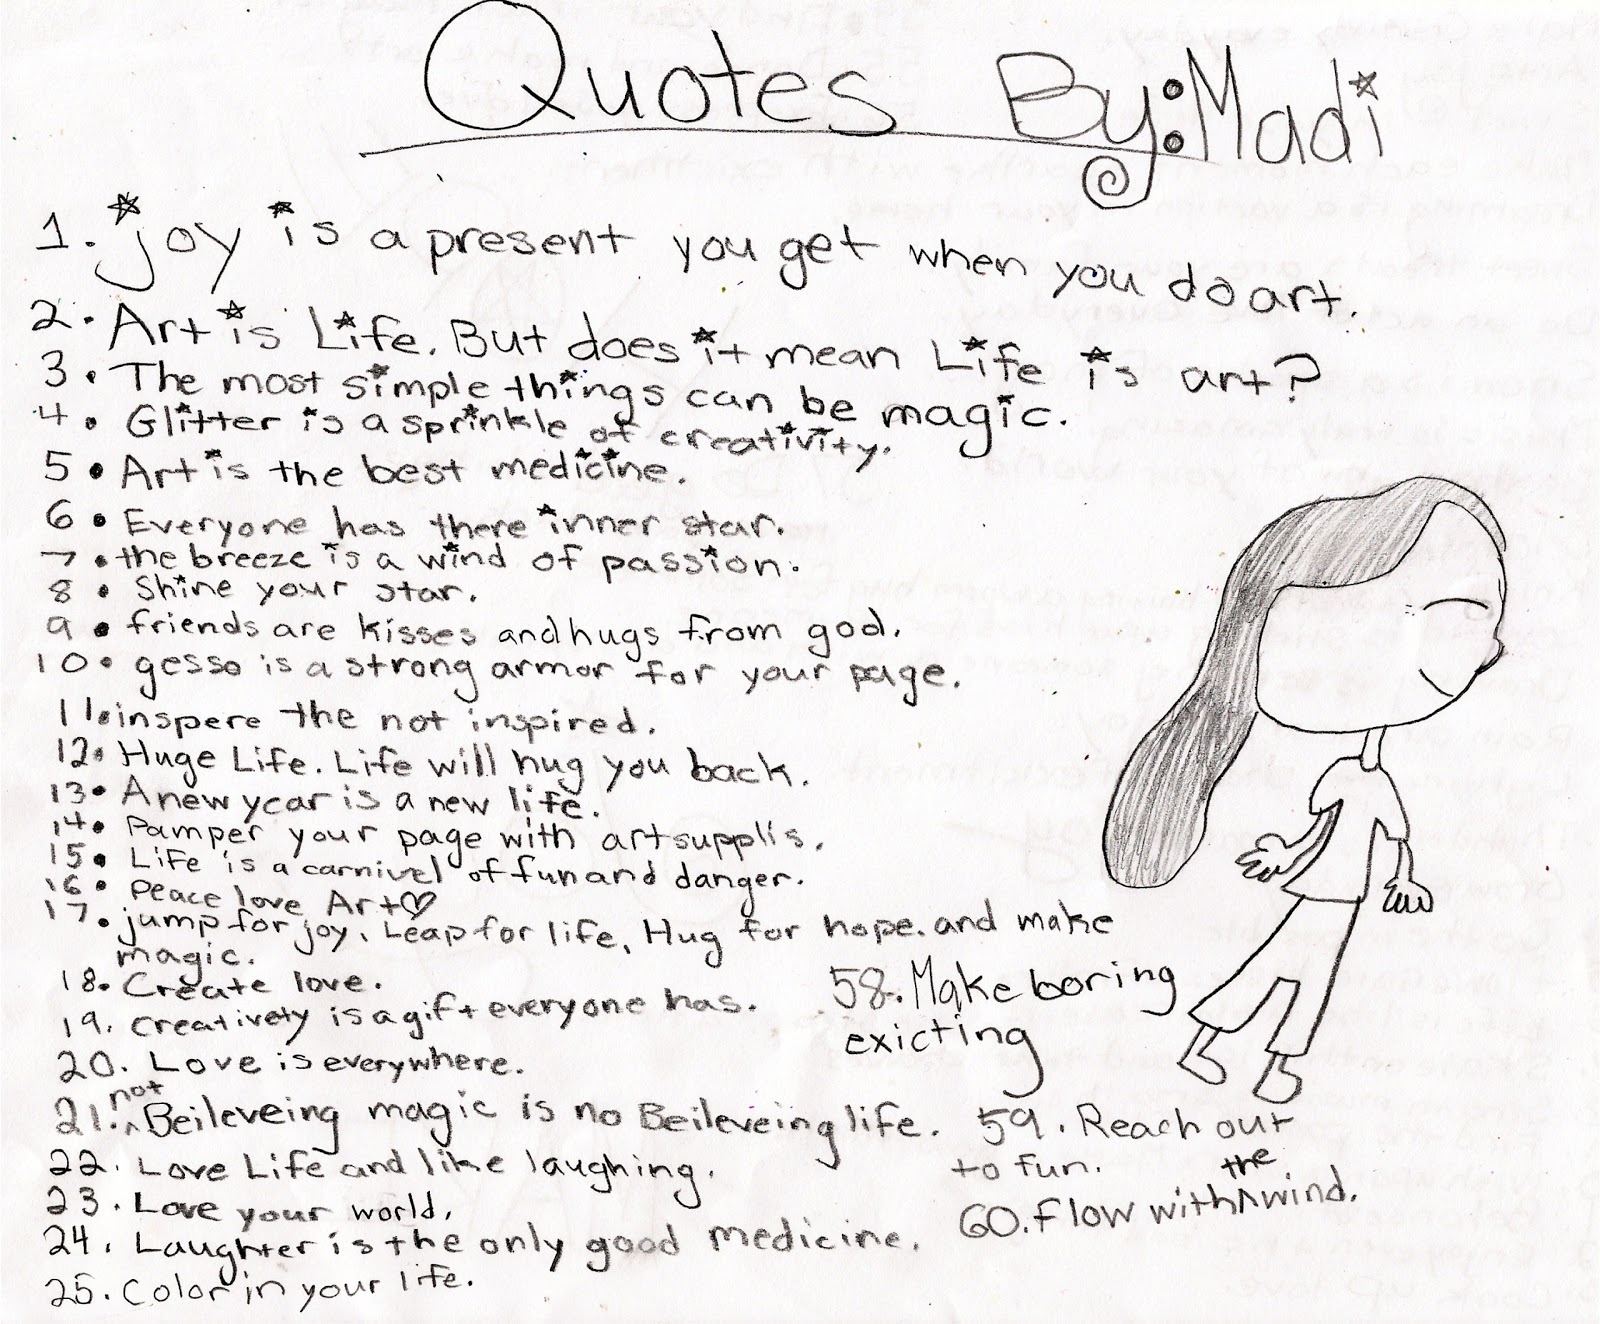 Quotes By: Madi
1. joy is a present you get when you do art.
2. Art is Life. But does it mean Life is art?
3. The most simple things can be magic.
4. Glitter is a sprinkle of creativity.
5. Art is the best medicine.
6. Everyone has there inner star.
7. the breeze is a wind of passion.
8. Shine your star.
9. friends are kisses and hugs from god.
10. gesso is a strong armor for your page.
11. inspere the not inspired.
12. Huge Life. Life will hug you back.
13. A new year is a new life.
14. Pamper your page with art supplis.
15. Life is a carnivel of fun and danger.
16. Peace love Art♡
17. jump for joy. Leap for life, Hug for hope. and make
magic.
18. Create love.
19. creativety is a gift everyone has.
20. Love is everywhere.
21. not Beileveing magic is no Beileveing life.
22. Love Life and like laughing.
23. Love your world.
24. Laughter is the only good medicine.
25. Color in your life.
58. Make boring
exicting
59. Reach out
to fun.
60. flow with the wind.